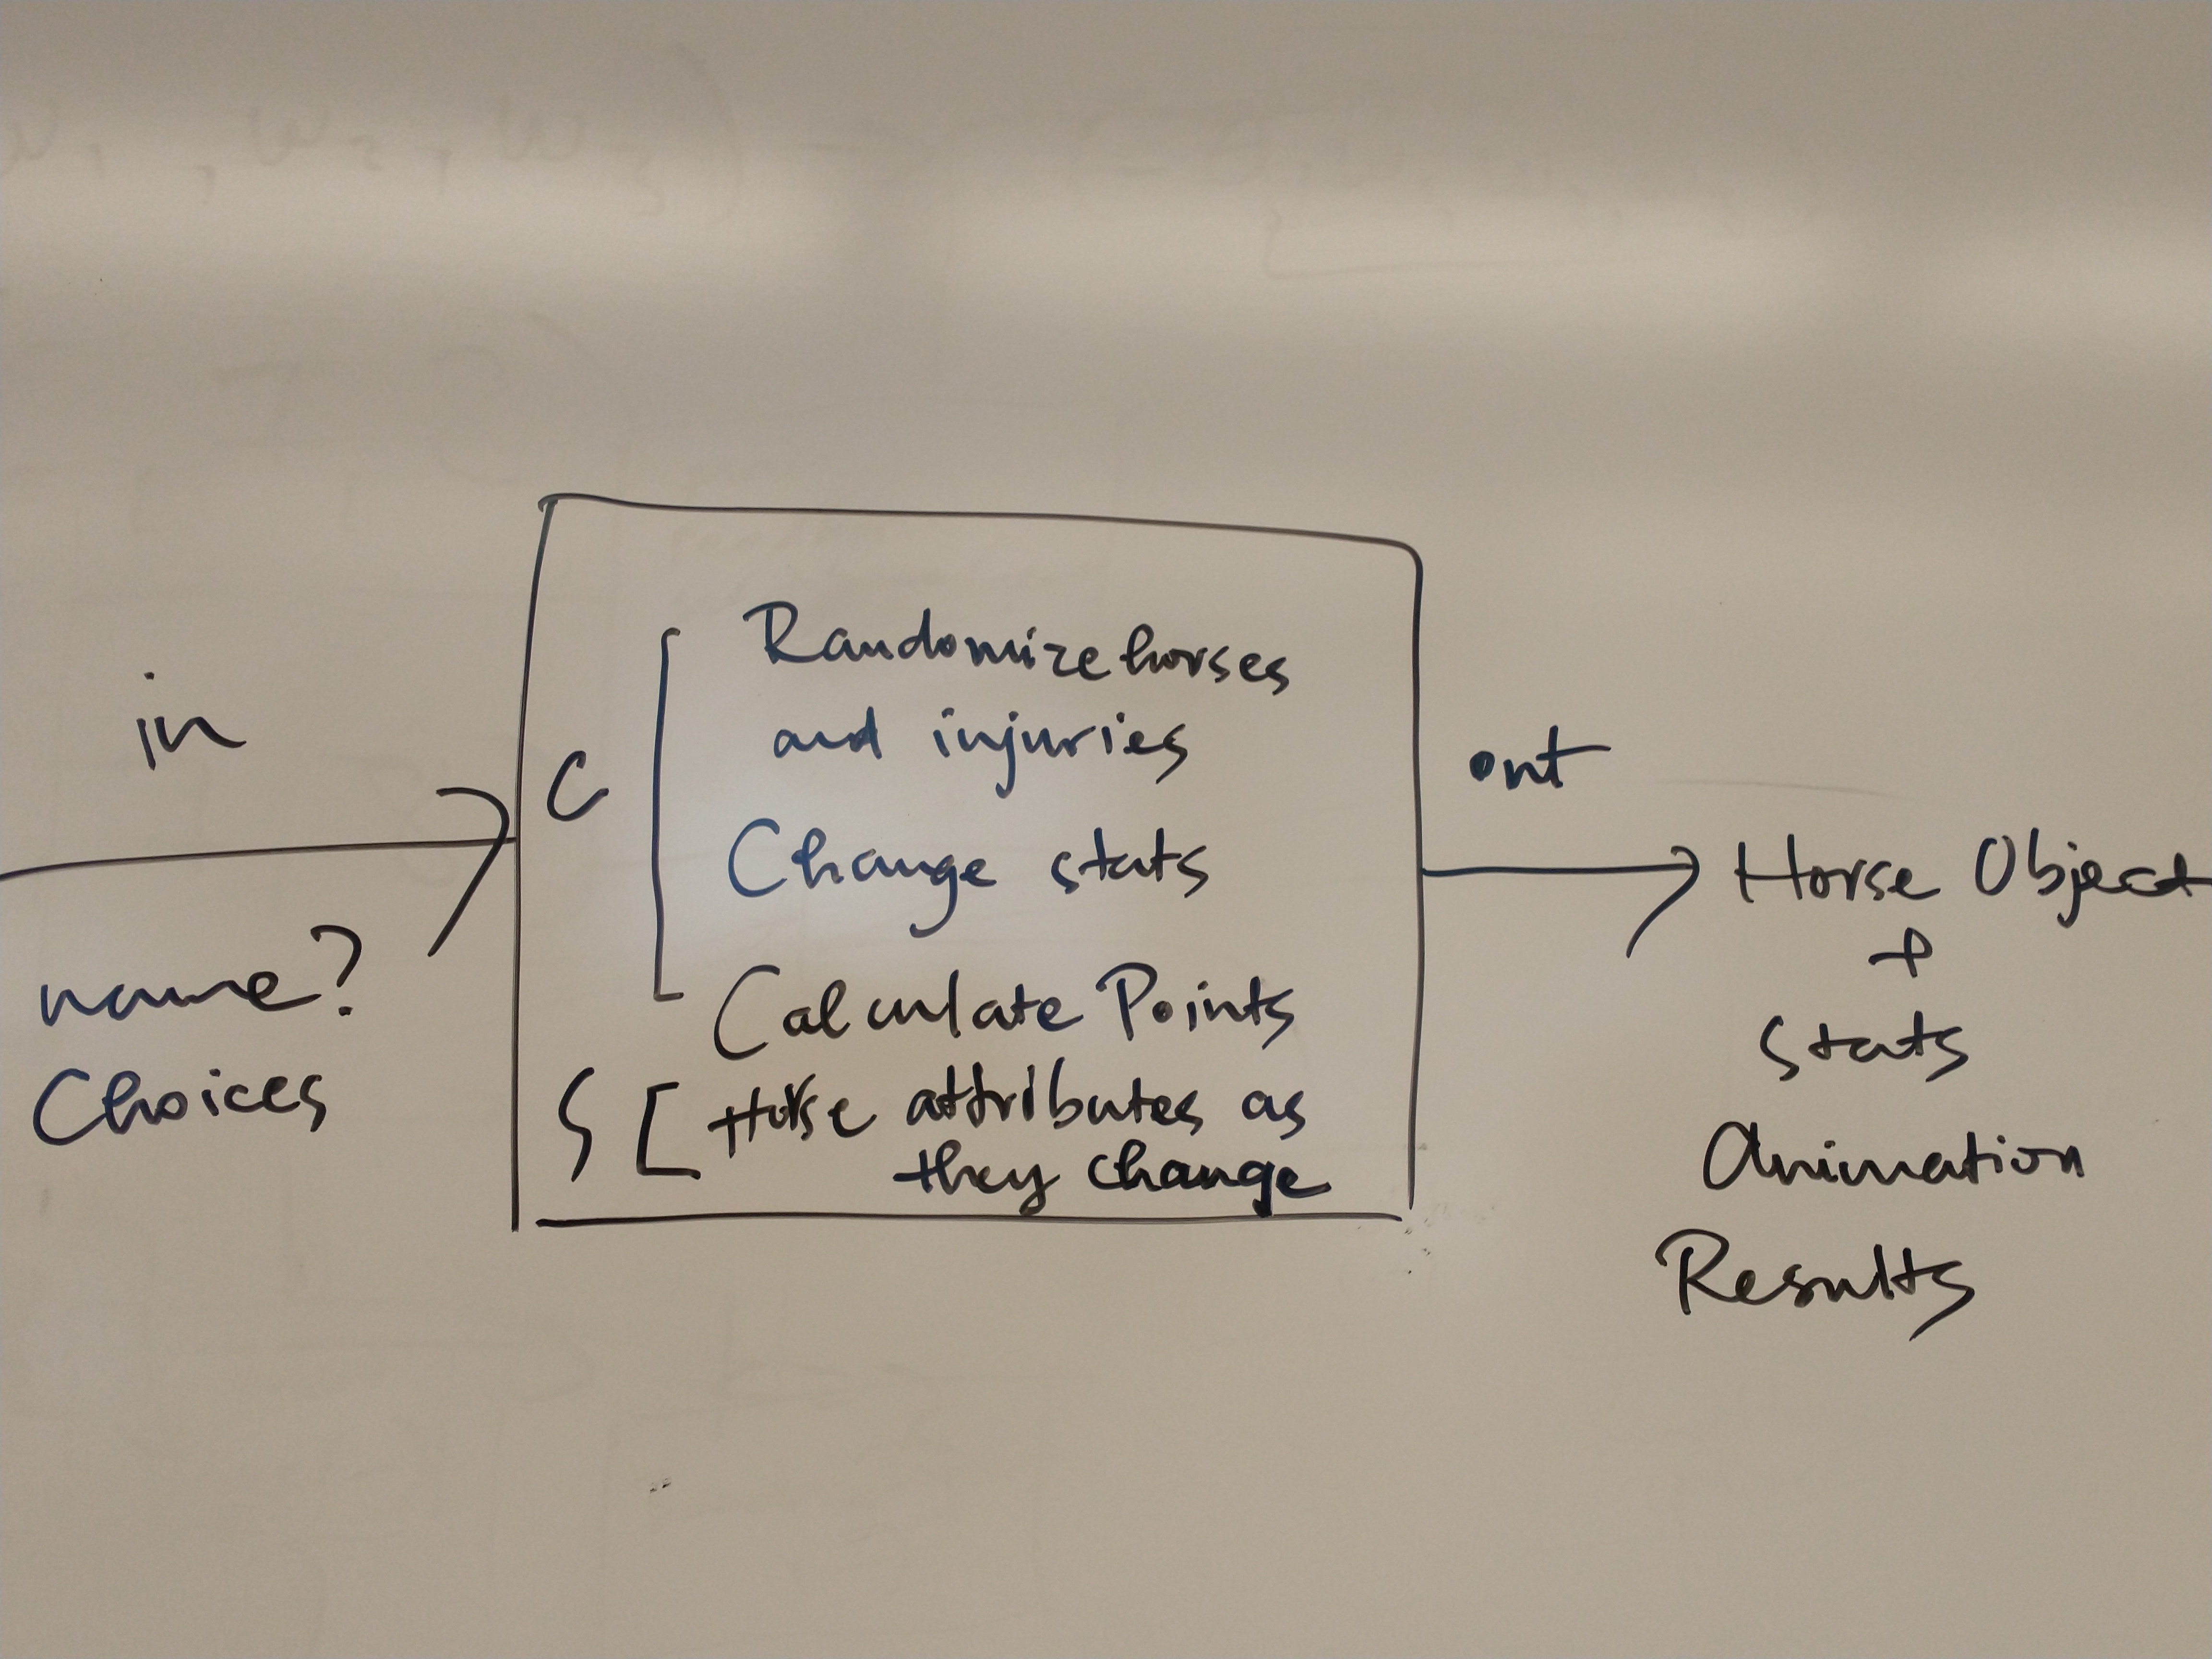 in
name?
Choices
C
Randomize horses
and injuries
Change stats
Calculate Points
S
Horse attributes as
they change
out
Horse Object
+
Stats
Animation
Results